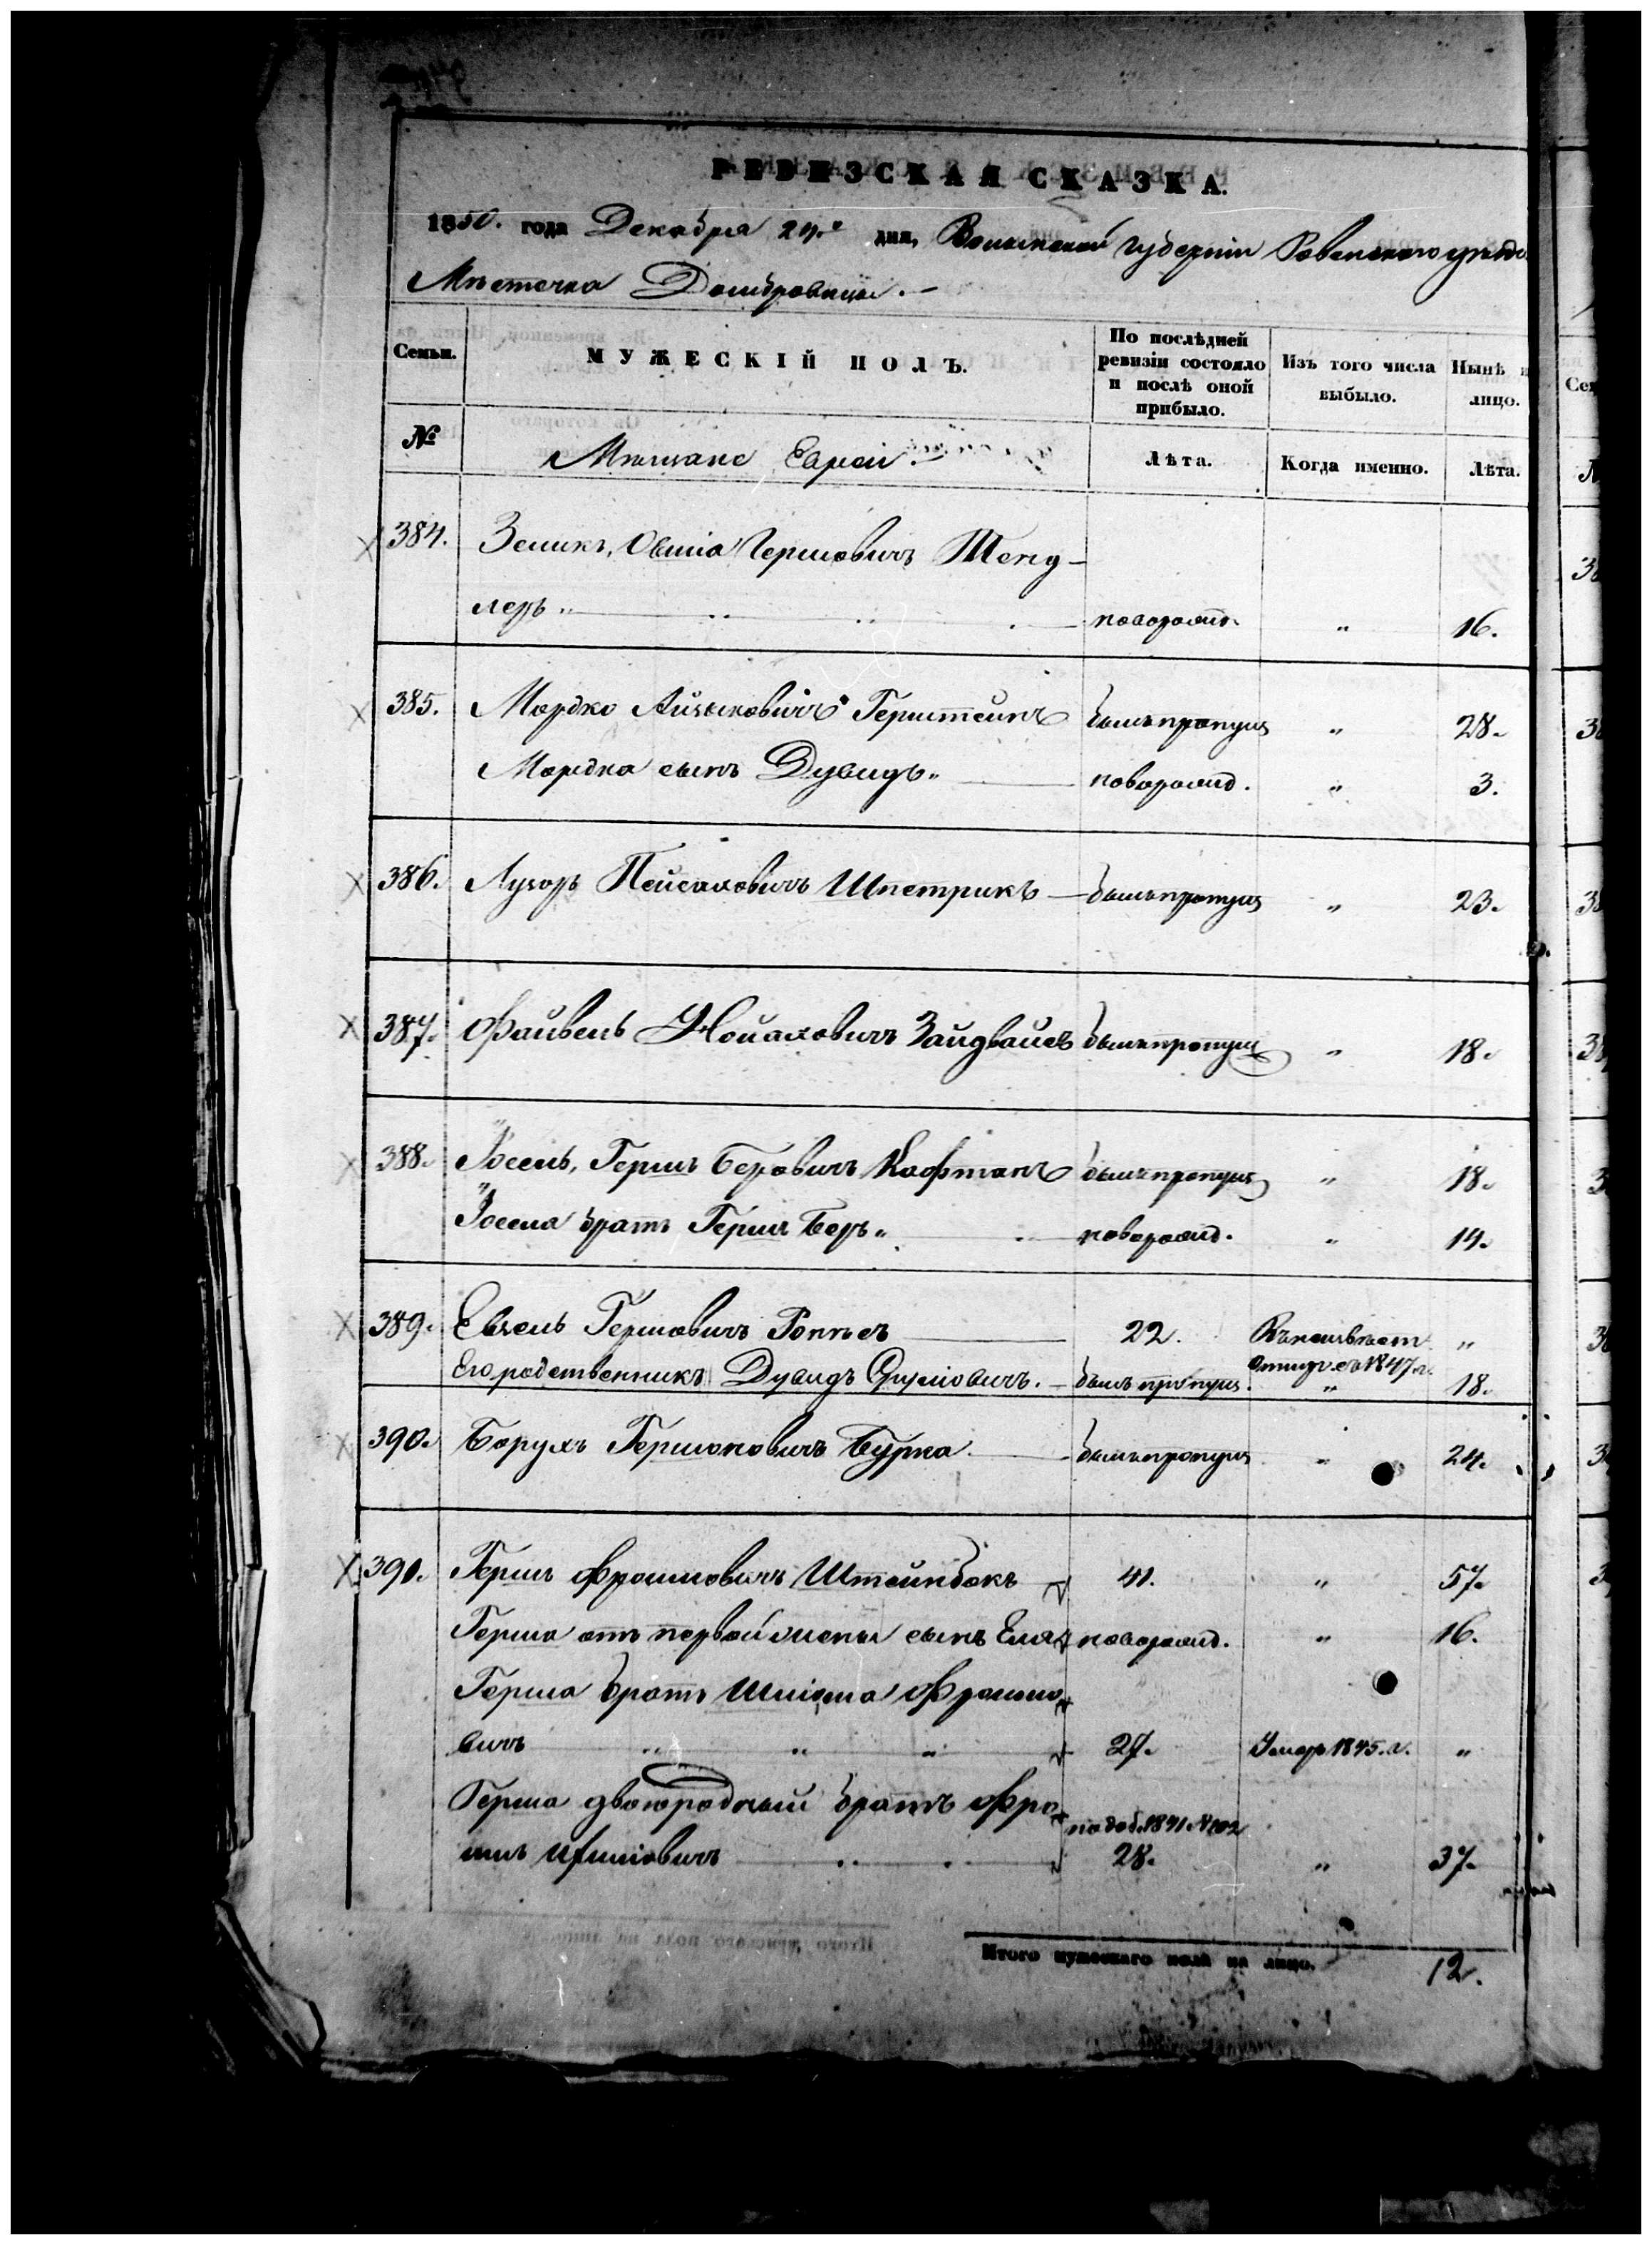 РЕВИЗСКАЯ СКАЗКА.
1850. года Декабря 24.го дня, Волынской Губернии Ровенского уезда
Местечка Домбровицы.
Семьи.
МУЖЕСКІЙ ПОЛЪ.
По послѣдней ревизіи состояло и послѣ оной прибыло.
Изъ того числа выбыло.
Нынѣ на лицо.
№
Мещане Евреи.
Лѣта.
Когда именно.
Лѣта.
384. Зеликъ, Овшіа Гершовичъ Тенд-
леръ „ новорожд. „ 16.
385. Мордко Айзиковичъ Герштейнъ былъ пропущ „ 28.
Мордка сынъ Дувидъ „ новорожд. „ 3.
386. Лузоръ Пейсаховичъ Шпетрикъ былъ пропущ „ 23.
387. Файвель Нойахович Зайдвайсъ былъ пропущ „ 18.
388. Іосель, Гершъ Беровичъ Кафтанъ былъ пропущ „ 18.
Іосела братъ Гершъ Беръ „ новорожд. „ 14.
389. Евзель Гершовичъ 22. „
Его родственникъ Дувидъ Сруліовичъ. былъ пропущ. „ 18.
въ 1847 г.
390. Борухъ Гершоновичъ Бурка былъ пропущ „ 24.
391. Гершъ Фроимовичъ Штейнбокъ 41. „ 57.
Герша отъ первой жены сынъ Еля новорожд. „ 16.
Герша братъ Шліома Фроимо
вичъ „ „ „ 27. Умеръ 1845. г. „
Герша двоюродный братъ Фро
по доб. 1841 № 102
имъ 28. „ 37.
Итого мужескаго пола на лицо. 12.